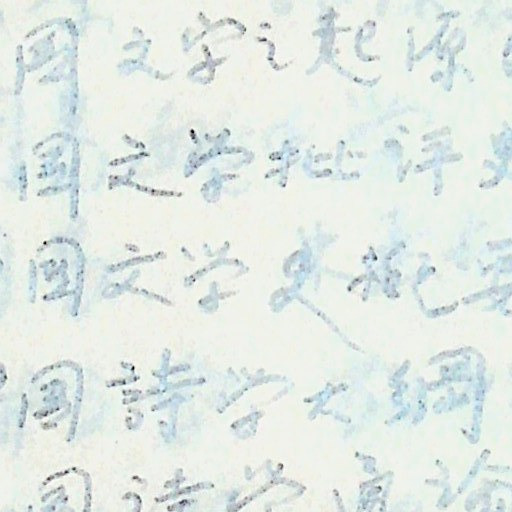 国文学之起源
国文学批评史
国文学史概要
国詩学大綱
国詩学通论